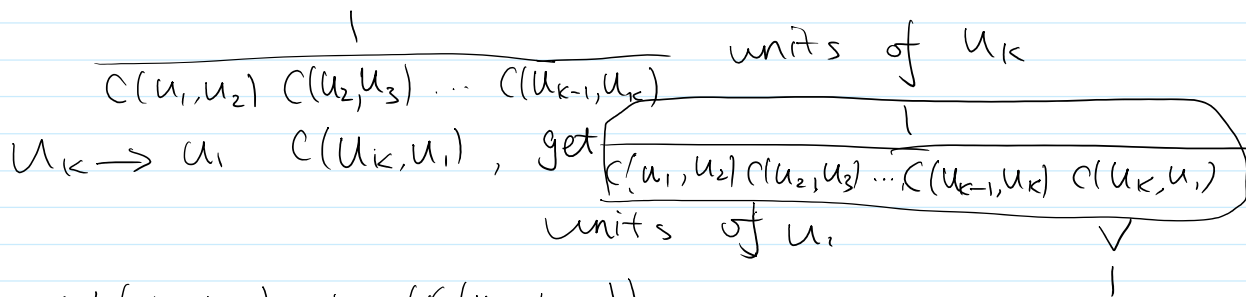 1
C(u₁,u₂) C(u₂,u₃) ... C(u_{k-1},u_k) units of u_k
u_k → u₁ C(u_k,u₁), get 1
C(u₁,u₂) C(u₂,u₃) ... C(u_{k-1},u_k) C(u_k,u₁)
units of u₁ V
1